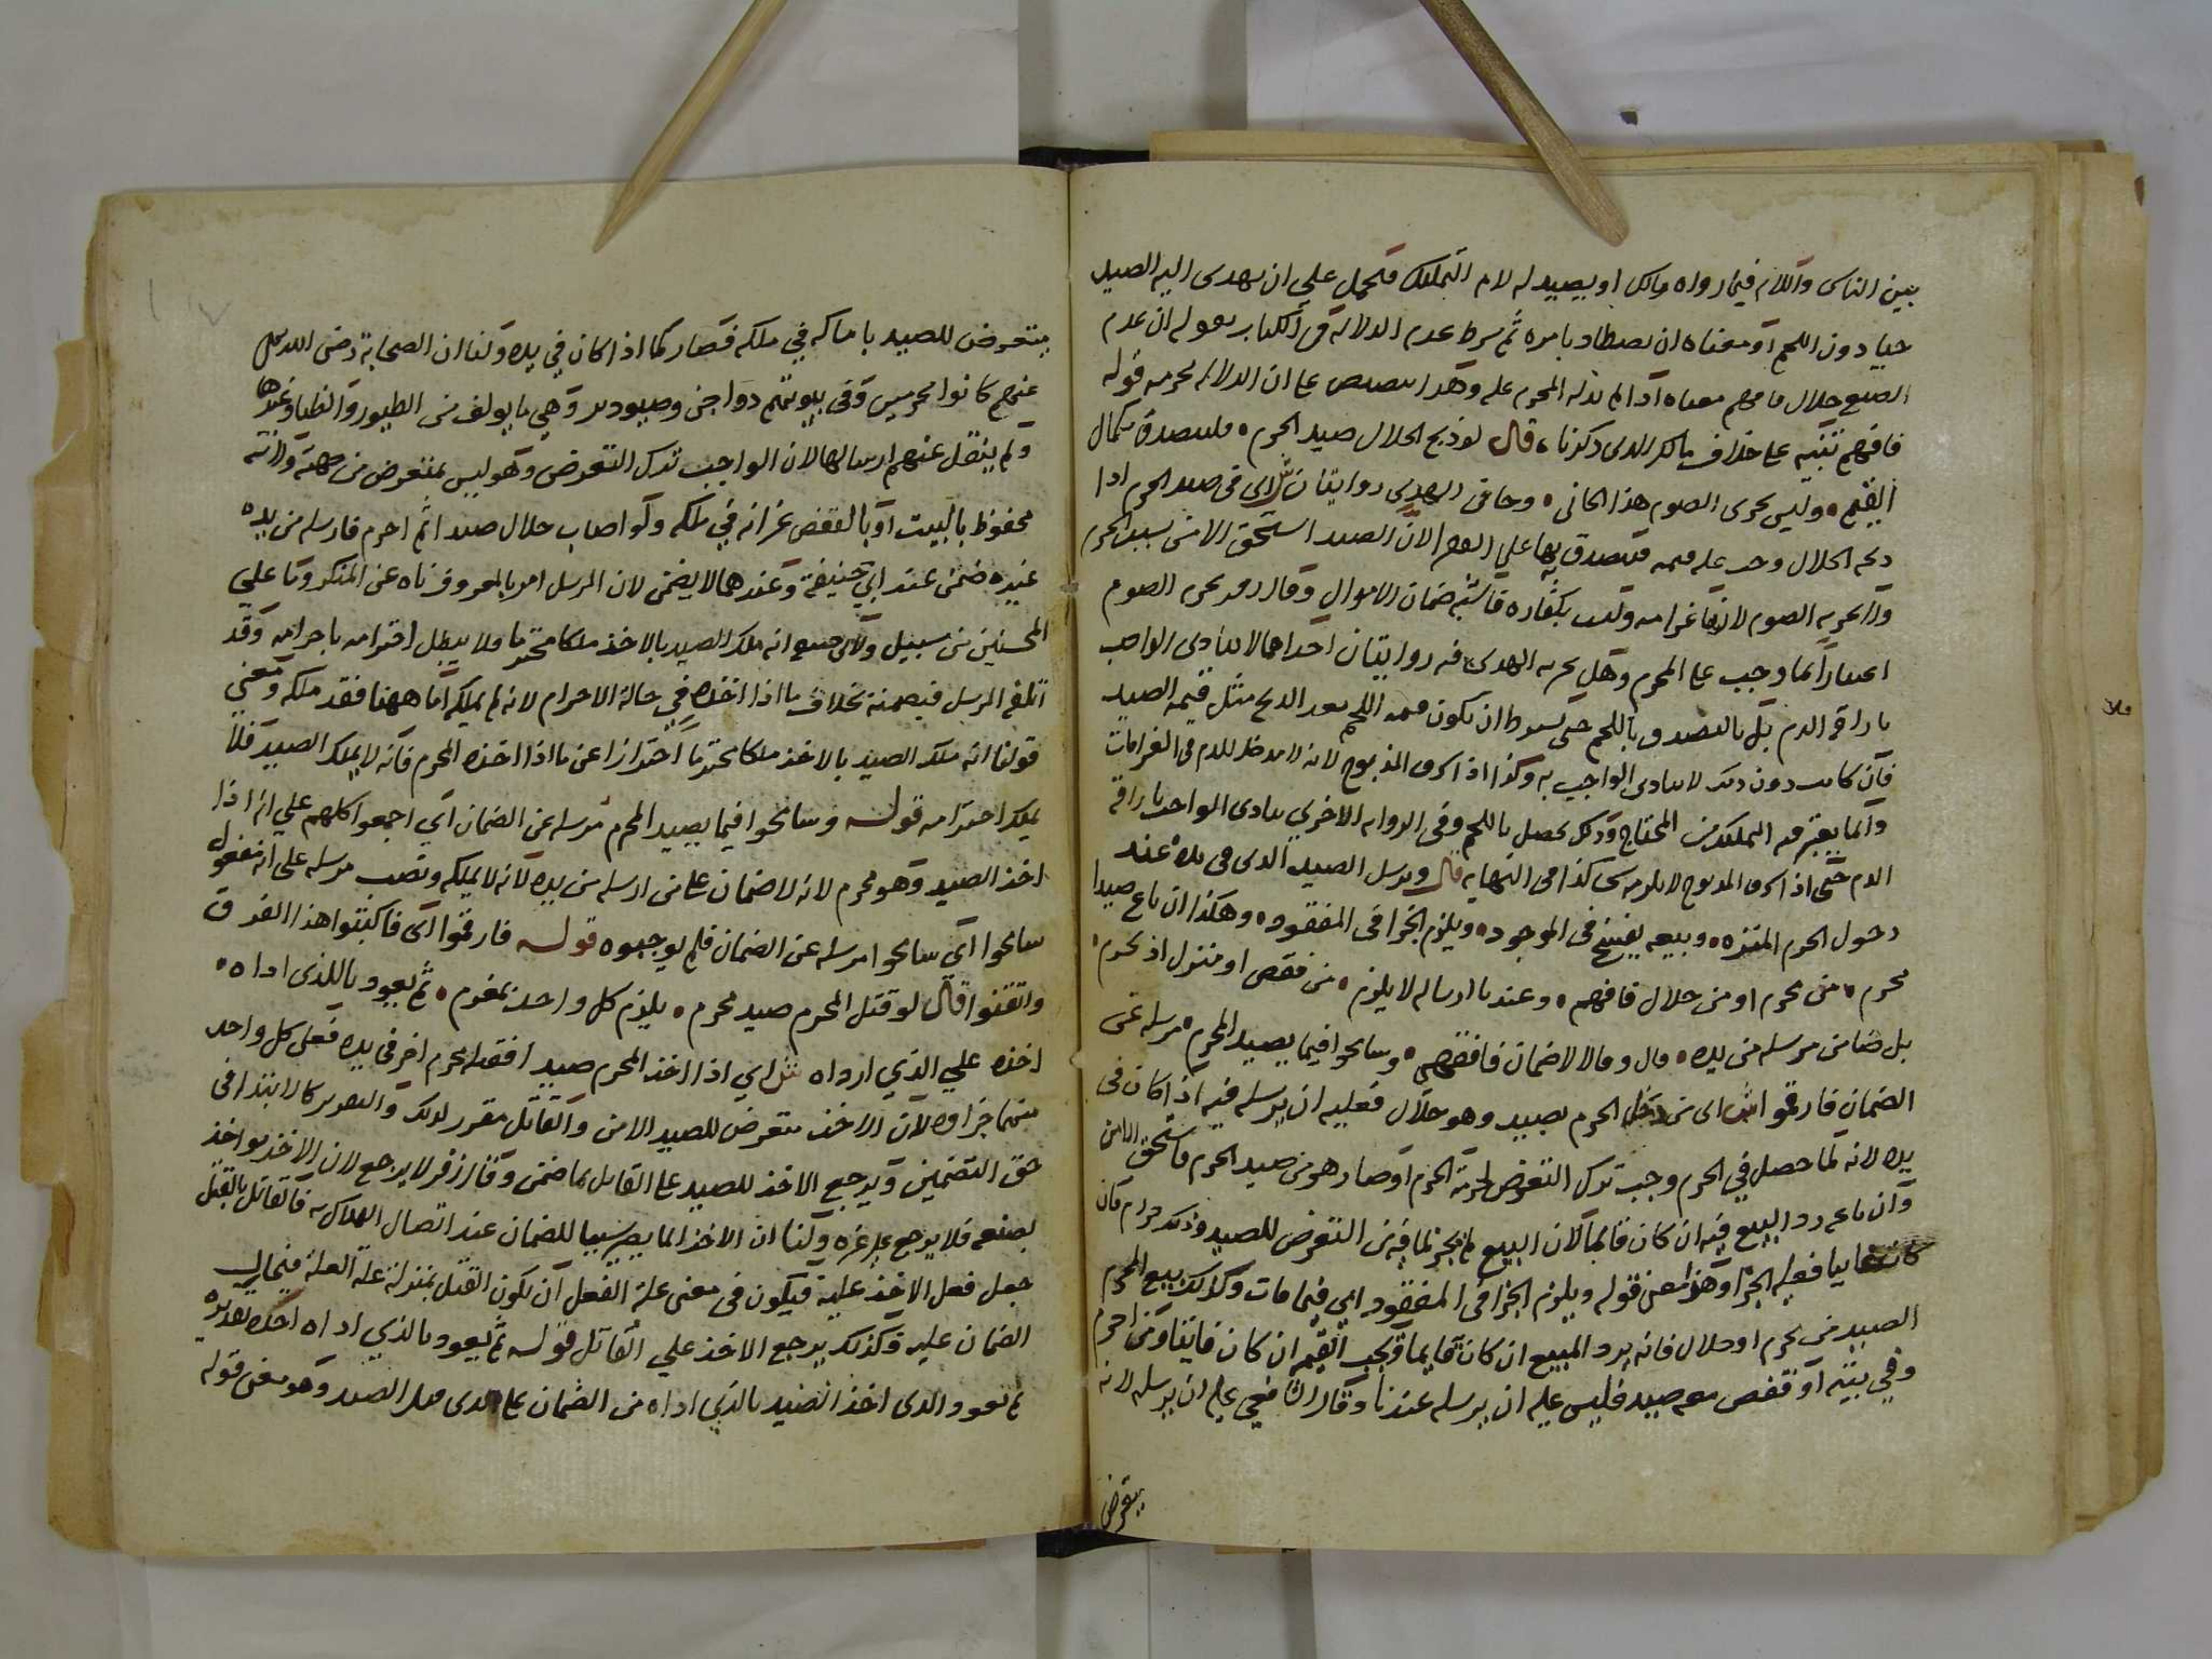 بين الناس واللام فيما رواه مالك او يصيد له لام التمليك فيحمل على ان يهدى اليه الصيد
حيا دون اللحم او معناه ان يصطاد بامره ثم شرط عدم الدلالة فى الكتاب بقوله ان عدم
الصنع حلال فافهم معناه اذا لم يدله المحرم عليه وهذا تنصيص على ان الدلالة محرمة قوله
فافهم تنبيه على خلاف مالك الذى ذكرنا قال لو ذبح الحلال صيد الحرم فليتصدق بكمال
القيم وليس يجزى الصوم هذا الجانى وجا فى الهدى روايتان ش اى فى صيد الحرم اذا
ذبحه الحلال وجب عليه قيمته فيتصدق بها على الفقرا لان الصيد استحق الامن بسبب الحرم
ولا يجزيه الصوم لانها غرامه وليست بكفاره فاشبه ضمان الاموال وقال زفر يجزيه الصوم
اعتبارا بما وجب على المحرم وهل يجزيه الهدى ففيه روايتان احداهما لا يتادى الواجب
باراقة الدم بل بالتصدق باللحم حتى يشترط ان يكون قيمة اللحم بعد الذبح مثل قيمة الصيد
فان كانت دون ذلك لا يتادى الواجب به وكذا اذا سرق المذبوح لانه لا مدخل للدم فى الغرامات
وانما يعتبر فيه التمليك من المحتاج وذلك يحصل باللحم وفى الرواية الاخرى يتادى الواجب باراقة
الدم حتى اذا سرق المذبوح لا يلزمه شى كذا فى النهايه قال ويرسل الصيد الذى فى يده عند
دخول الحرم المنتزه وبيعه يفسخ فى الموجود ويلزم الجزا فى المفقود وهكذا ان باع صيدا
محرم من محرم او من حلال فافهم وعندنا ارساله لا يلزم من قفص او منزل اذ يحرم
بل ضامن مرسله من يده قال وقالا لا ضمان فافقهه وسامحوا فيما يصيد المحرم مرسله عن
الضمان فارقموا ش اى من دخل الحرم بصيد وهو حلال فعليه ان يرسله فيه اذا كان فى
يده لانه لما حصل فى الحرم وجب ترك التعرض لحرمة الحرم او صار هو من صيد الحرم فاستحق الامن
وان باعه رد البيع فيه ان كان قائما لان البيع لم يجز لما فيه من التعرض للصيد وذلك حرام فان
كان غايبا فعليه الجزا وهذا معنى قوله ويلزم الجزا فى المفقود اى فيما مات وكذلك بيع المحرم
الصيد من محرم او حلال فانه يرد المبيع ان كان قايما ويجب القيم ان كان فايتا ومن احرم
وفى بيته او قفص معه صيد فليس عليه ان يرسله عندنا وقال الشافعى عليه ان يرسله لانه
يتعرض
متعرض للصيد بامساكه فى ملكه فصار كما اذا كان فى يده ولنا ان الصحابة رضى الله تعالى
عنهم كانوا محرمين وفى بيوتهم دواجن وصيود وهى ما يولف من الطيور والظبا وغيرها
ولم ينقل عنهم ارسالها لان الواجب ترك التعرض وهو ليس بمتعرض من جهته لانه
محفوظ بالبيت او بالقفص غير انه فى ملكه ولو اصاب حلال صيدا ثم احرم فارسله من يده
غيره ضمن عند ابى حنيفة وعندهما لا يضمن لان المرسل امر بالمعروف ناه عن المنكر وما على
المحسنين من سبيل ولابى حنيفة انه ملك الصيد بالاخذ ملكا محترما فلا يبطل احترامه باحرامه وقد
اتلفه المرسل فيضمنه بخلاف ما اذا اخذه فى حالة الاحرام لانه لم يملكه اما ههنا فقد ملكه ومعنى
قولنا انه ملك الصيد بالاخذ ملكا محترما احترازا عن ما اذا اخذه المحرم فانه لا يملك الصيد فلا
يملك احترامه قوله وسامحوا فيما يصيد المحرم مرسله عن الضمان اى اجمعوا كلهم على انه اذا
اخذ الصيد وهو محرم لانه لا ضمان على من ارسله من يده لانه لا يملكه ونصب مرسله على انه مفعول
سامحوا اى سامحوا مرسله عن الضمان فلم يوجبوه قوله فارقموا اى فاكتبوا هذا الفرق
واتقنوا قال لو قتل المحرم صيد محرم يلزم كل واحد بمغرم ثم يعود باللذى اداه
اخذه على الذى ارداه ش اى اذا اخذ المحرم صيدا فقتله محرم اخر فى يده فعلى كل واحد
منهما جزاوه لان الاخذ متعرض للصيد الامن والقاتل مقرر لذلك والتقرير كالابتدا فى
حق التضمين ويرجع الاخذ للصيد على القاتل بما ضمن وقال زفر لا يرجع لان الاخذ مواخذ
بصنعه فلا يرجع على غيره ولنا ان الاخذ انما يصير سببا للضمان عند اتصال الهلاك به فالقاتل بالقتل
جعل فعل الاخذ علة فيكون فى معنى علة الفعل ان يكون القتل بمنزلة علة العلة فيحال
الضمان عليه وكذلك يرجع الاخذ على القاتل قوله ثم يعود بالذى اداه اخذه تقديره
ثم يعود الذى اخذ الصيد بالذى اداه من الضمان على الذى قتل الصيد وهو معنى قوله